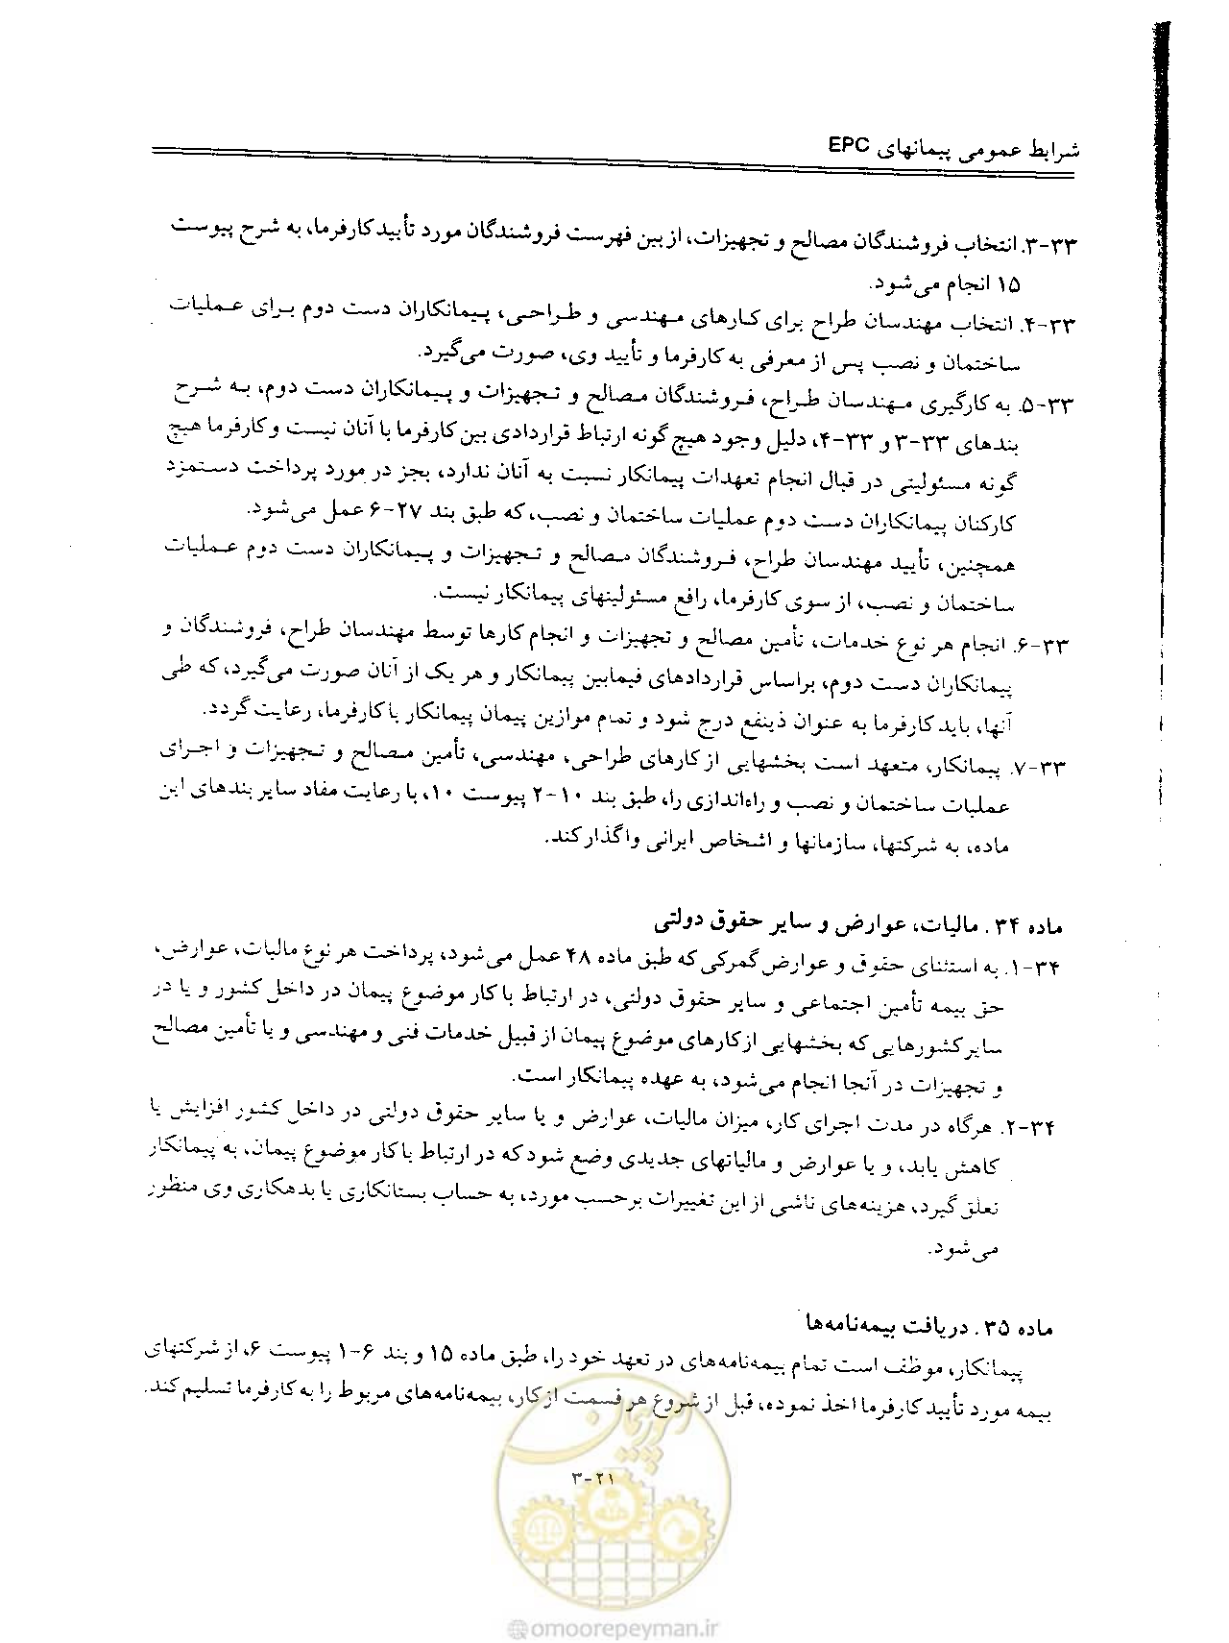 شرایط عمومی پیمانهای EPC
۳۳-۳. انتخاب فروشندگان مصالح و تجهیزات، از بین فهرست فروشندگان مورد تأیید کارفرما، به شرح پیوست
۱۵ انجام می‌شود.
۳۳-۴. انتخاب مهندسان طراح برای کارهای مهندسی و طراحی، پیمانکاران دست دوم برای عملیات
ساختمان و نصب پس از معرفی به کارفرما و تأیید وی، صورت می‌گیرد.
۳۳-۵. به کارگیری مهندسان طراح، فروشندگان مصالح و تجهیزات و پیمانکاران دست دوم، به شرح
بندهای ۳۳-۳ و ۳۳-۴، دلیل وجود هیچ گونه ارتباط قراردادی بین کارفرما با آنان نیست و کارفرما هیچ
گونه مسئولیتی در قبال انجام تعهدات پیمانکار نسبت به آنان ندارد، بجز در مورد پرداخت دستمزد
کارکنان پیمانکاران دست دوم عملیات ساختمان و نصب، که طبق بند ۲۷-۶ عمل می‌شود.
همچنین، تأیید مهندسان طراح، فروشندگان مصالح و تجهیزات و پیمانکاران دست دوم عملیات
ساختمان و نصب، از سوی کارفرما، رافع مسئولیتهای پیمانکار نیست.
۳۳-۶. انجام هر نوع خدمات، تأمین مصالح و تجهیزات و انجام کارها توسط مهندسان طراح، فروشندگان و
پیمانکاران دست دوم، براساس قراردادهای فیمابین پیمانکار و هر یک از آنان صورت می‌گیرد، که طی
آنها، باید کارفرما به عنوان ذینفع درج شود و تمام موازین پیمان پیمانکار با کارفرما، رعایت گردد.
۳۳-۷. پیمانکار، متعهد است بخشهایی از کارهای طراحی، مهندسی، تأمین مصالح و تجهیزات و اجرای
عملیات ساختمان و نصب و راه‌اندازی را، طبق بند ۱۰-۲ پیوست ۱۰، با رعایت مفاد سایر بندهای این
ماده، به شرکتها، سازمانها و اشخاص ایرانی واگذار کند.
ماده ۳۴. مالیات، عوارض و سایر حقوق دولتی
۳۴-۱. به استثنای حقوق و عوارض گمرکی که طبق ماده ۴۸ عمل می‌شود، پرداخت هر نوع مالیات، عوارض،
حق بیمه تأمین اجتماعی و سایر حقوق دولتی، در ارتباط با کار موضوع پیمان در داخل کشور و یا در
سایر کشورهایی که بخشهایی از کارهای موضوع پیمان از قبیل خدمات فنی و مهندسی و یا تأمین مصالح
و تجهیزات در آنجا انجام می‌شود، به عهده پیمانکار است.
۳۴-۲. هرگاه در مدت اجرای کار، میزان مالیات، عوارض و یا سایر حقوق دولتی در داخل کشور افزایش یا
کاهش یابد، و یا عوارض و مالیاتهای جدیدی وضع شود که در ارتباط با کار موضوع پیمان، به پیمانکار
تعلق گیرد، هزینه‌های ناشی از این تغییرات برحسب مورد، به حساب بستانکاری یا بدهکاری وی منظور
می‌شود.
ماده ۳۵. دریافت بیمه‌نامه‌ها
پیمانکار، موظف است تمام بیمه‌نامه‌های در تعهد خود را، طبق ماده ۱۵ و بند ۶-۱ پیوست ۶، از شرکتهای
بیمه مورد تأیید کارفرما اخذ نموده، قبل از شروع هر قسمت از کار، بیمه‌نامه‌های مربوط را به کارفرما تسلیم کند.
امور پیمان
۳-۲۱
@omoorepeyman.ir